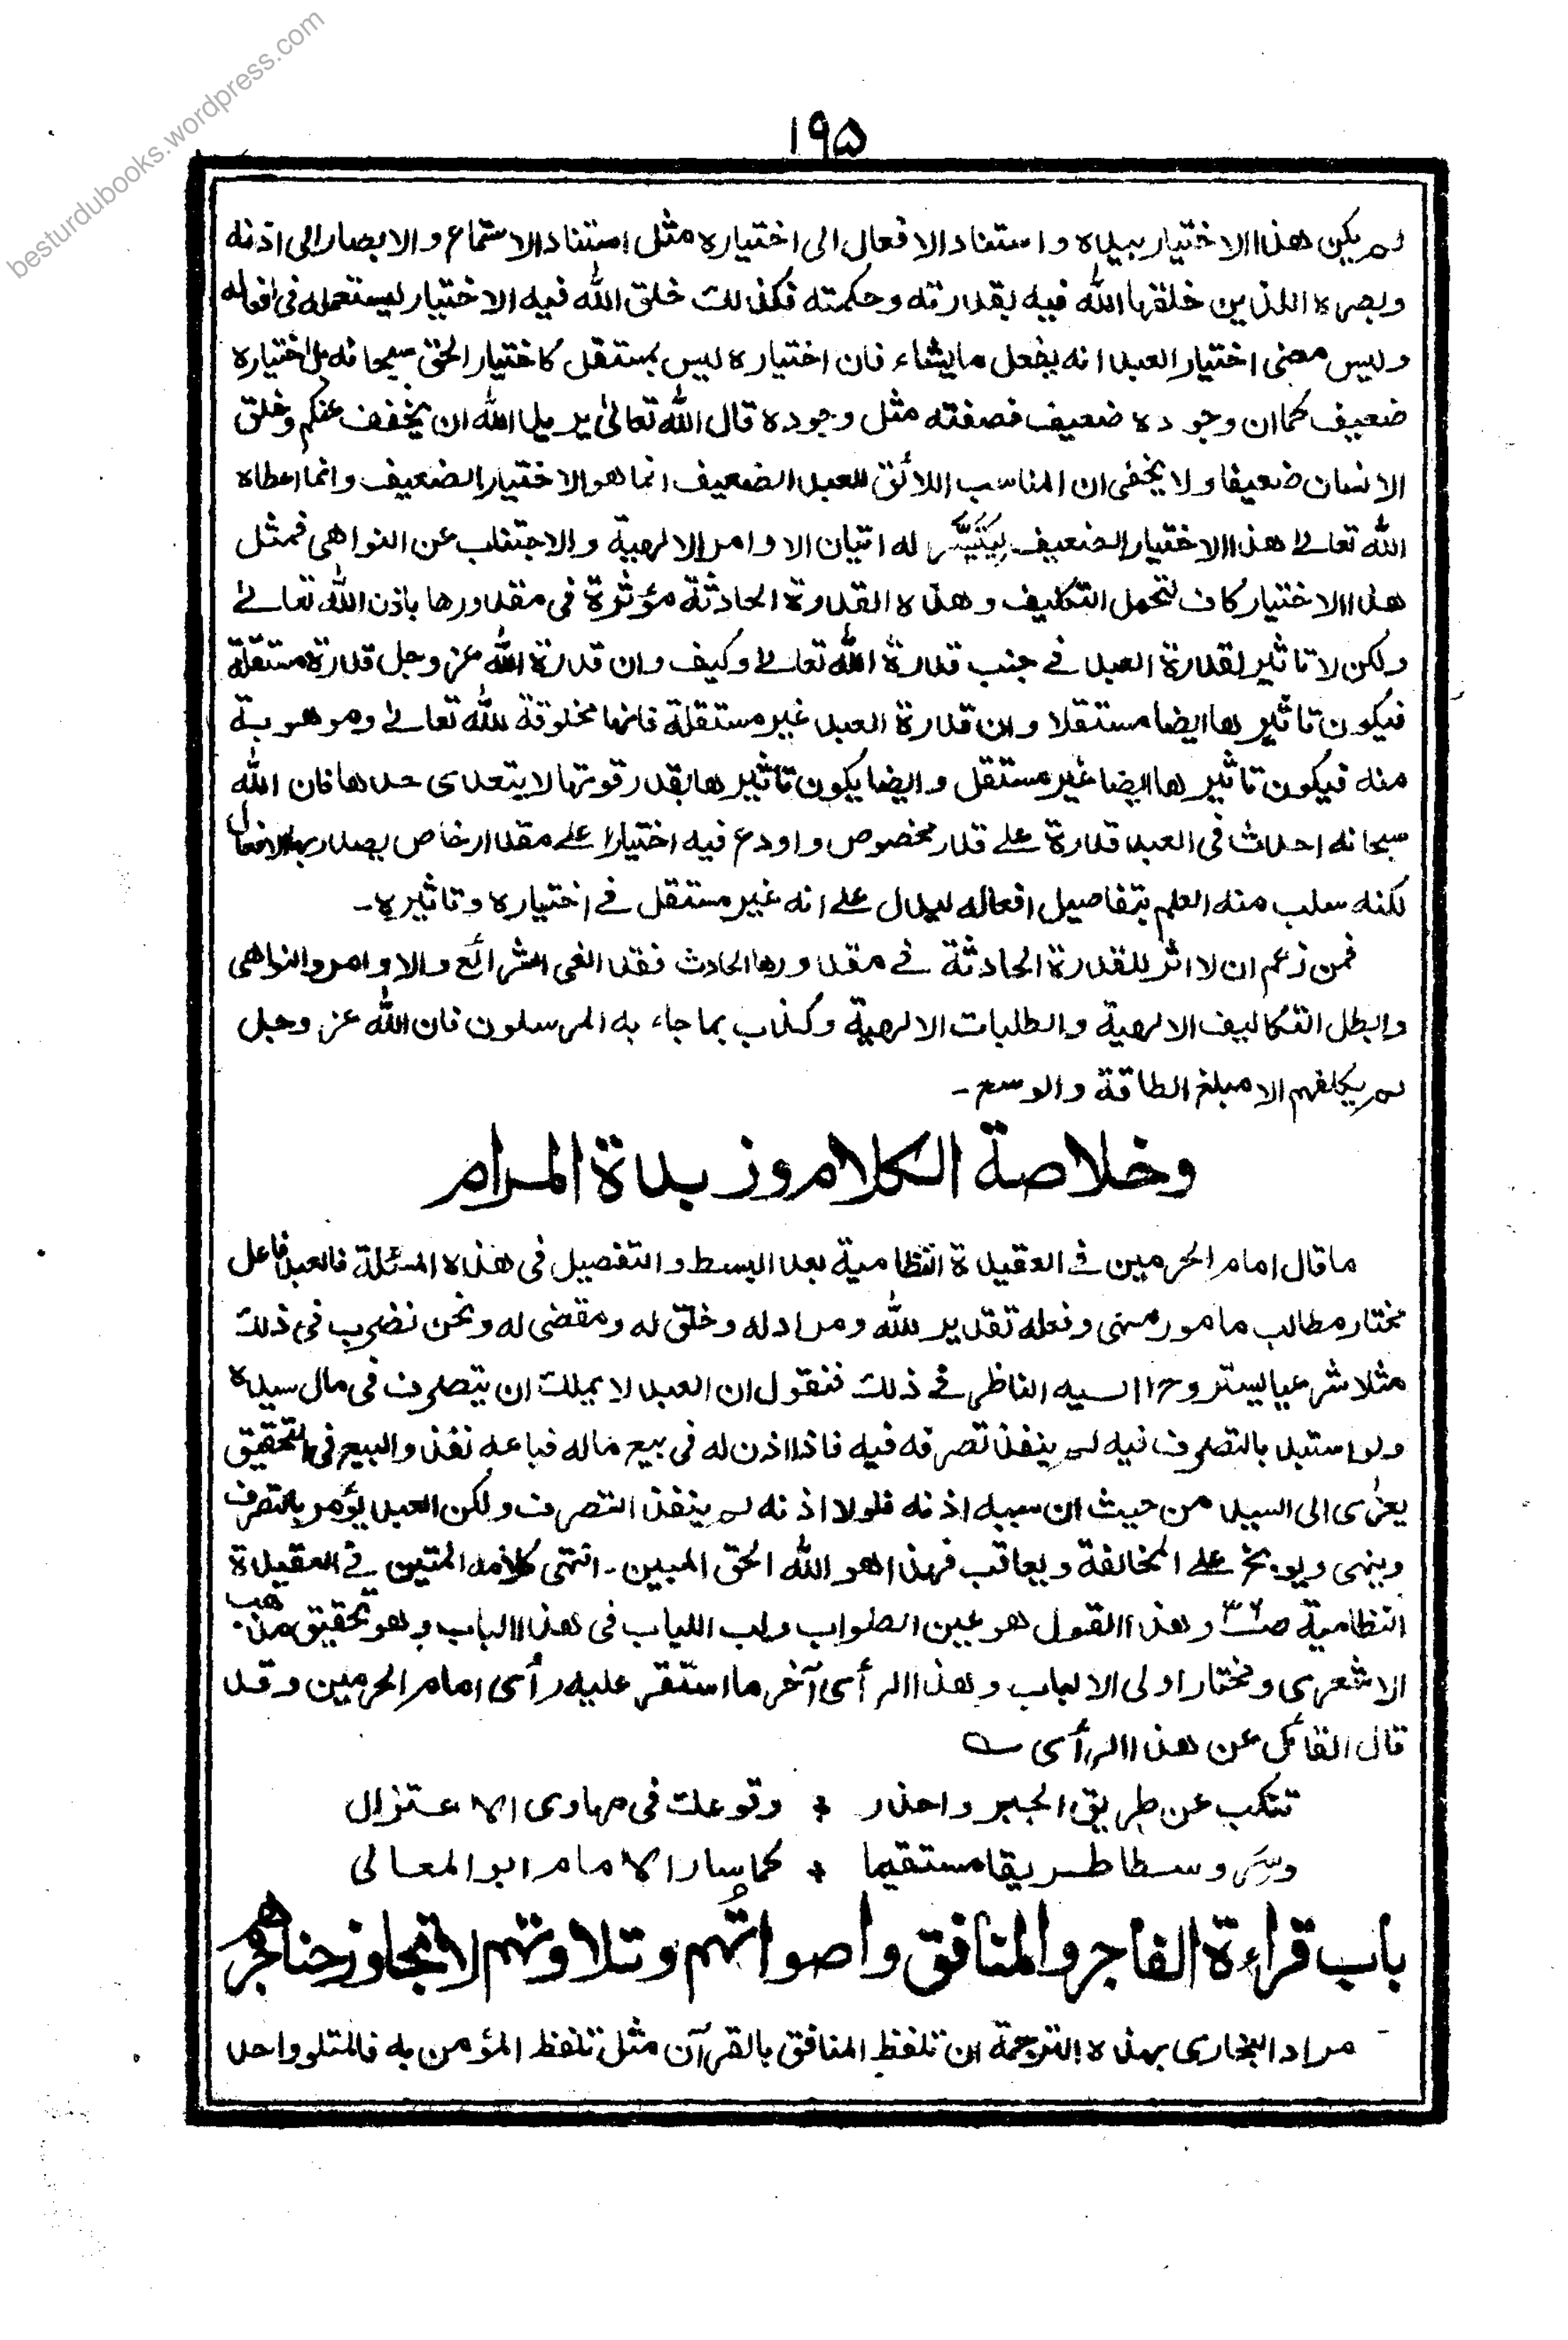 besturdubooks.wordpress.com
۱۹۵
لم يكن هذا الاختيار بيده واستناد الافعال الى اختياره مثل استناد الاستماع والابصار الى اذنه
وبصره اللذين خلقها الله فيه بقدرته وحكمته فكذلك خلق الله فيه الاختيار ليستعمله فى افعاله
وليس معنى اختيار العبد انه يفعل مايشاء فان اختياره ليس بمستقل كاختيار الحق سبحانه بل اختياره
ضعيف كما ان وجوده ضعيف فصفته مثل وجوده قال الله تعالىٰ يريد الله ان يخفف عنكم وخلق
الانسان ضعيفا ولا يخفى ان المناسب اللائق للعبد الضعيف انما هو الاختيار الضعيف وانما اعطاه
الله تعالىٰ هذا الاختيار الضعيف لِيَتَيَسَّر له اتيان الاوامر الالهية والاجتناب عن النواهى فمثل
هذا الاختيار كاف لتحمل التكليف وهذه القدرة الحادثة مؤثرة فى مقدورها باذن الله تعالىٰ
ولكن لا تاثير لقدرة العبد فى جنب قدرة الله تعالىٰ وكيف وان قدرة الله عز وجل قدرة مستقلة
فيكون تاثيرها ايضا مستقلا وان قدرة العبد غير مستقلة فانها مخلوقة لله تعالىٰ وموهوبة
منه فيكون تاثيرها ايضا غير مستقل وايضا يكون تاثيرها بقدر قوتها لا يتعدى حدها فان الله
سبحانه احدث فى العبد قدرة على قدر مخصوص واودع فيه اختيارا على مقدار خاص يصدر بها الافعال
لكنه سلب منه العلم بتفاصيل افعاله ليدل على انه غير مستقل فى اختياره وتاثيره۔
فمن زعم ان لا اثر للقدرة الحادثة فى مقدورها الحادث فقد الغى الشرائع والاوامر والنواهى
وابطل التكاليف الالهية والطلبات الالهية وكذب بما جاء به المرسلون فان الله عز وجل
لم يكلفهم الا مبلغ الطاقة والوسع۔
وخلاصة الكلام وزبدة المرام
ما قال امام الحرمين فى العقيدة النظامية بعد البسط والتفصيل فى هذه المسئلة فالعبد فاعل
مختار مطالب مامور منهى وفعله تقدير لله ومراد له وخلق له ومقضى له ونحن نضرب فى ذلك
مثلا شرعيا يستروح اليه الناظر فى ذلك فنقول ان العبد لا يملك ان يتصرف فى مال سيده
ولو استبد بالتصرف فيه لم ينفذ تصرفه فيه فاذا اذن له فى بيع ماله فباعه نفذ والبيع فى التحقيق
يعزٰى الى السيد من حيث ان سببه اذنه فلولا اذنه لم ينفذ التصرف ولكن العبد يؤمر بالتصرف
وينهى ويوبخ على المخالفة ويعاقب فهذا هو الله الحق المبين۔ انتهى كلامه المتين فى العقيدة
النظامية وهذا القول هو عين الصواب ولب اللباب فى هذا الباب وهو تحقيق مذهب
الاشعرى ومختار اولى الالباب وهذا الرأى آخر ما استقر عليه رأى امام الحرمين وقد
قال القائل عن هذا الرأى
تنكب عن طريق الجبر واحذر ٭ وقوعك فى مهاوى الاعتزال
وسِر وسطا طريقا مستقيما ٭ كما سار الامام ابو المعالى
باب قراءة الفاجر والمنافق واصواتُهم وتلاوتهم لا تجاوز حناجرهم
مراد البخارى بهذه الترجمة ان تلفظ المنافق بالقرآن مثل تلفظ المؤمن به فالمتلو واحد